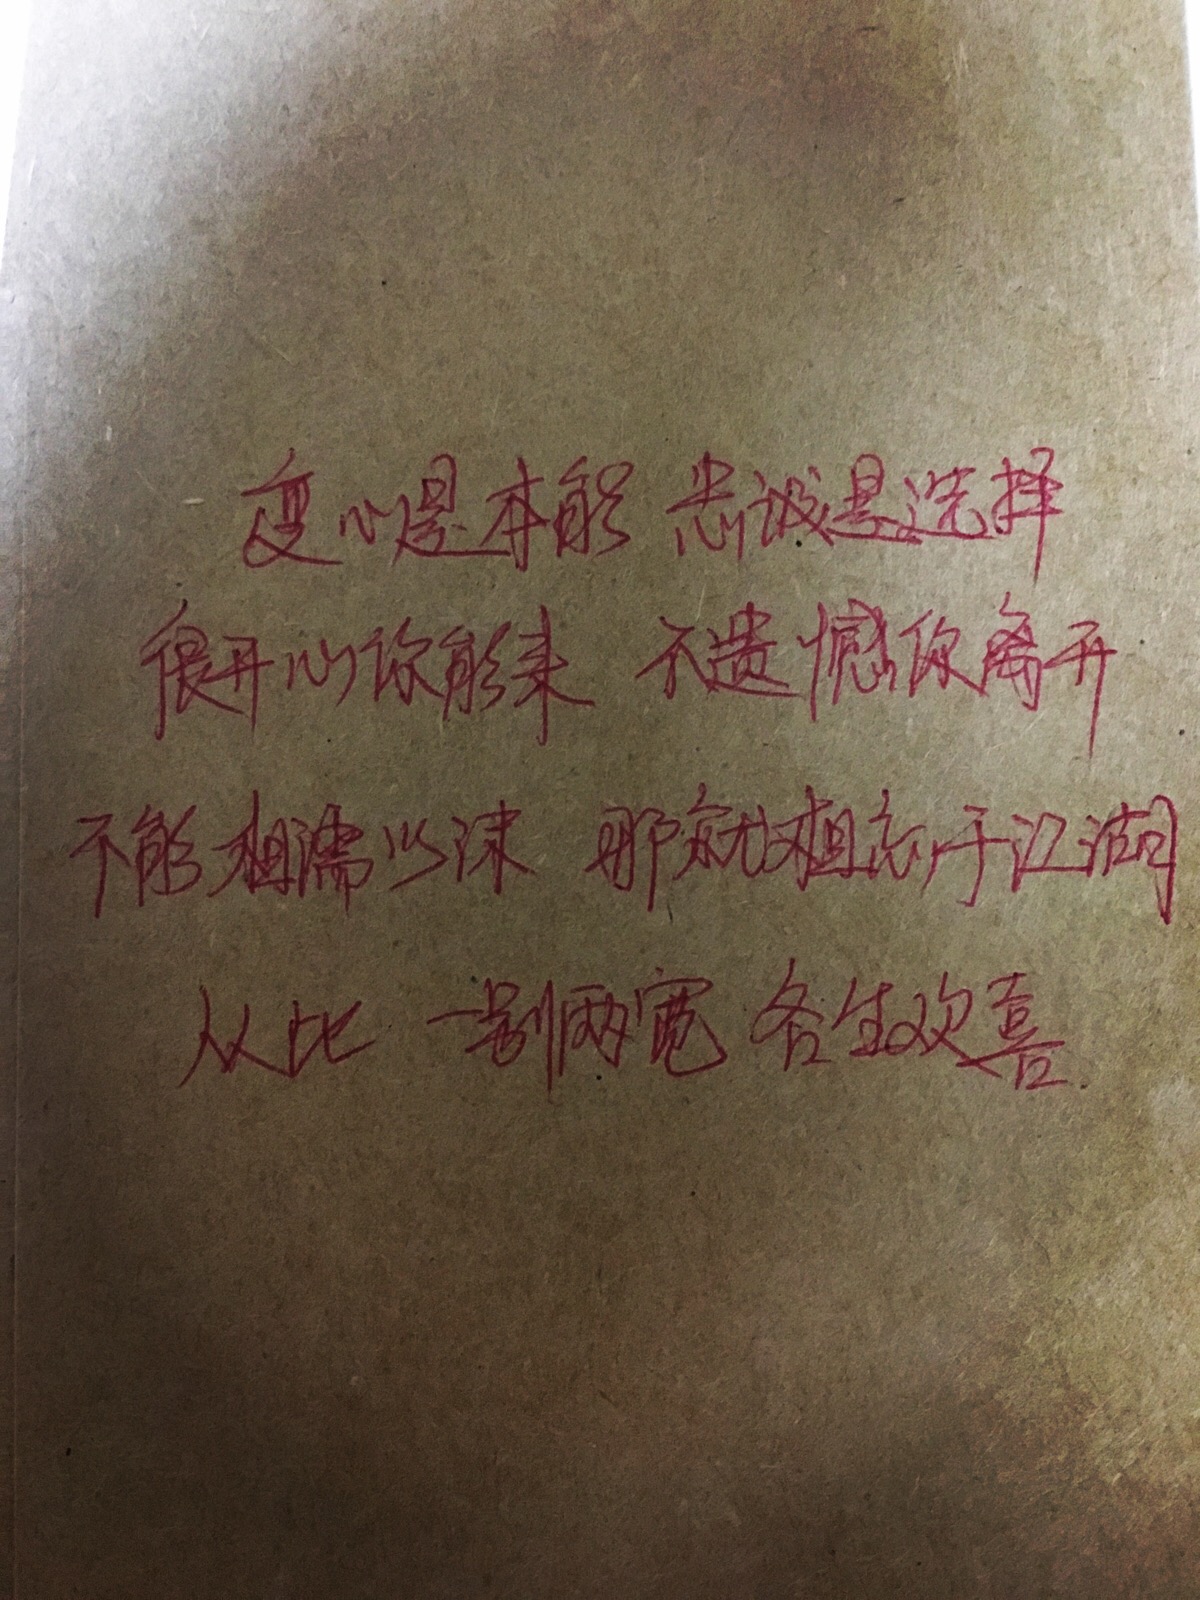 变心是本能 忠诚是选择
很开心你能来 不遗憾你离开
不能相濡以沫 那就相忘于江湖
从此 一别两宽 各生欢喜.